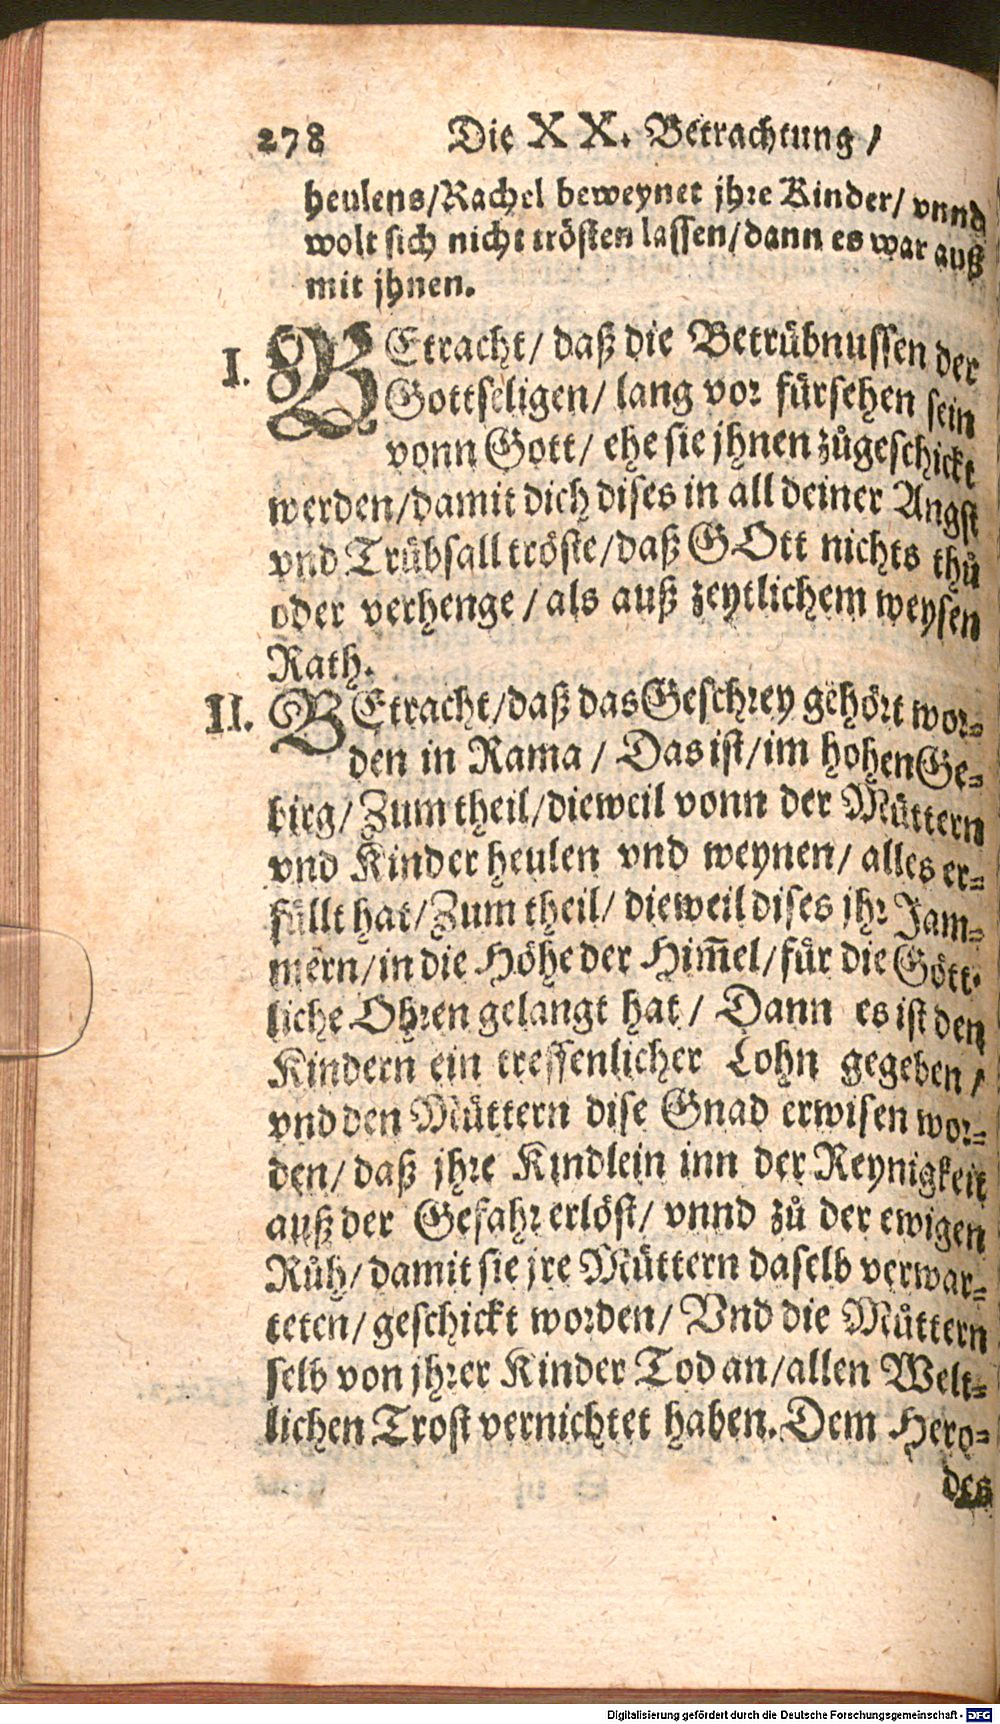 278 Die XX. Betrachtung /
heulens/Rachel beweynet jhre Kinder/ vnnd
wolt sich nicht trösten lassen/dann es war auß
mit jhnen.
I. BEtracht/ daß die Betrübnussen der
Gottseligen/ lang vor fürsehen sein
vonn Gott/ ehe sie jhnen zůgeschickt
werden/damit dich dises in all deiner Angst
vnd Trübsall tröste/daß GOtt nichts thů
oder verhenge / als auß zeytlichem weysen
Rath.
II. BEtracht/daß das Geschrey gehört wor-
den in Rama / Das ist/im hohen Ge-
birg/ Zum theil/dieweil vonn der Müttern
vnd Kinder heulen vnd weynen/ alles er-
füllt hat/Zum theil/ dieweil dises jhr Jam-
mern/in die Höhe der Him̃el/für die Gött-
liche Ohren gelangt hat/ Dann es ist den
Kindern ein treffenlicher Lohn gegeben /
vnd den Müttern dise Gnad erwisen wor-
den/ daß jhre Kindlein inn der Reynigkeit
auß der Gefahr erlöst/ vnnd zů der ewigen
Růh/ damit sie jre Müttern daselb verwar-
teten/ geschickt worden/ Vnd die Můttern
selb von jhrer Kinder Tod an/allen Welt-
lichen Trost vernichtet haben. Dem Hero-
des
Digitalisierung gefördert durch die Deutsche Forschungsgemeinschaft - DFG